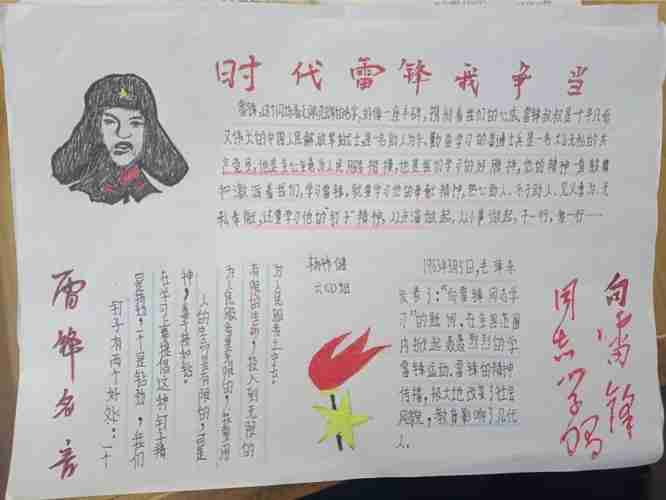 时代雷锋我争当
又伟大的中国人民解放军战士是一名助人为乐、勤奋学习的普通士兵是一名大公无私的共
产党员,他是全心全意为人民服务的楷模,也是我们学习的好榜样,他的精神一直鼓舞
和激励着我们,学习雷锋,就要学习他的奉献精神,热心助人、乐于助人、见义勇为、无
私奉献,还要学习他的"钉子"精神,从点滴做起,从小事做起,干一行,爱一行……
雷锋名言
钉子有两个好处:一个
是挤劲,一个是钻劲,我们
在学习上要提倡这种钉子精
神,善于挤和钻。
人的生命是有限的,可是
为人民服务是无限的,我要用
有限的生命,投入到无限的
为人民服务之中去。
1963年3月5日,毛泽东
发表了:"向雷锋同志学
习"的题词,在全国范围
内掀起轰轰烈烈的学
雷锋运动,雷锋的精神
传播,极大地改变了社会
风貌,教育影响了几代
人.
向雷锋
同志学习